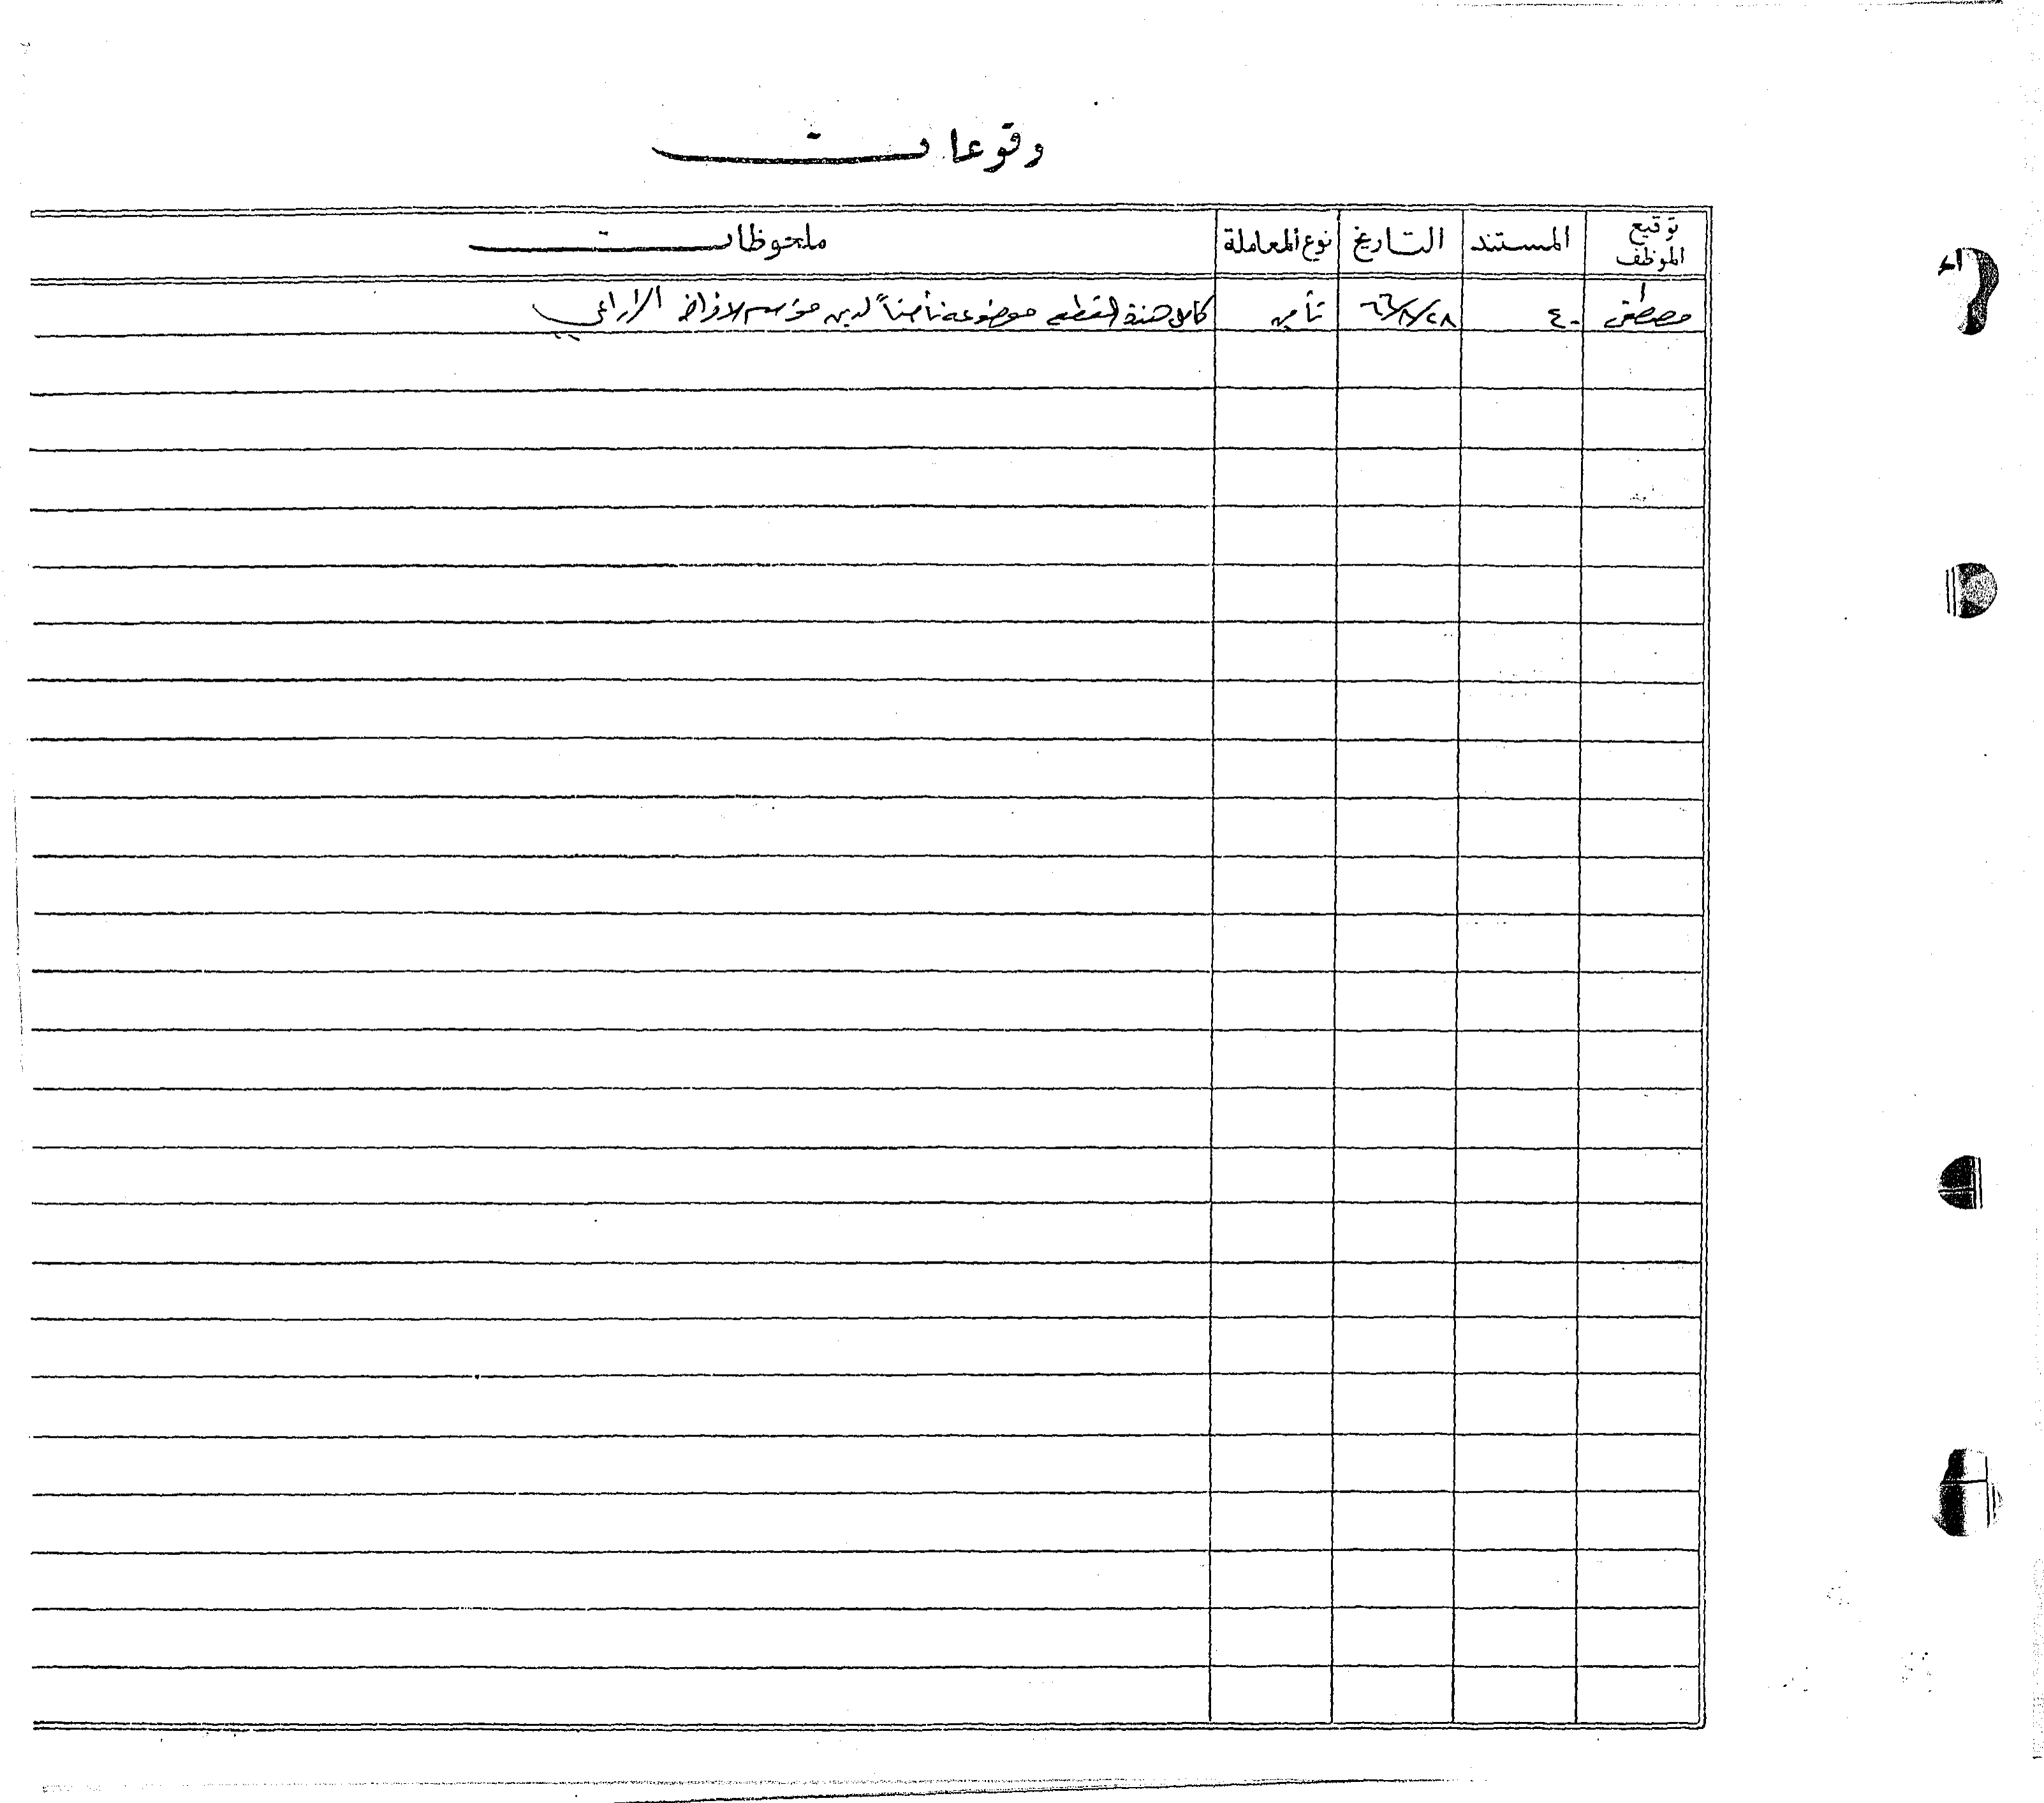 وقوعات
توقيع الموظف المستند التاريخ نوع المعاملة ملحوظات
مصطفى ٤٠ ٦٦/٨/٢٨ تأمين كامل هذه القطعه موضوعه تأميناً لدين مؤسسه الاقراض الزراعي